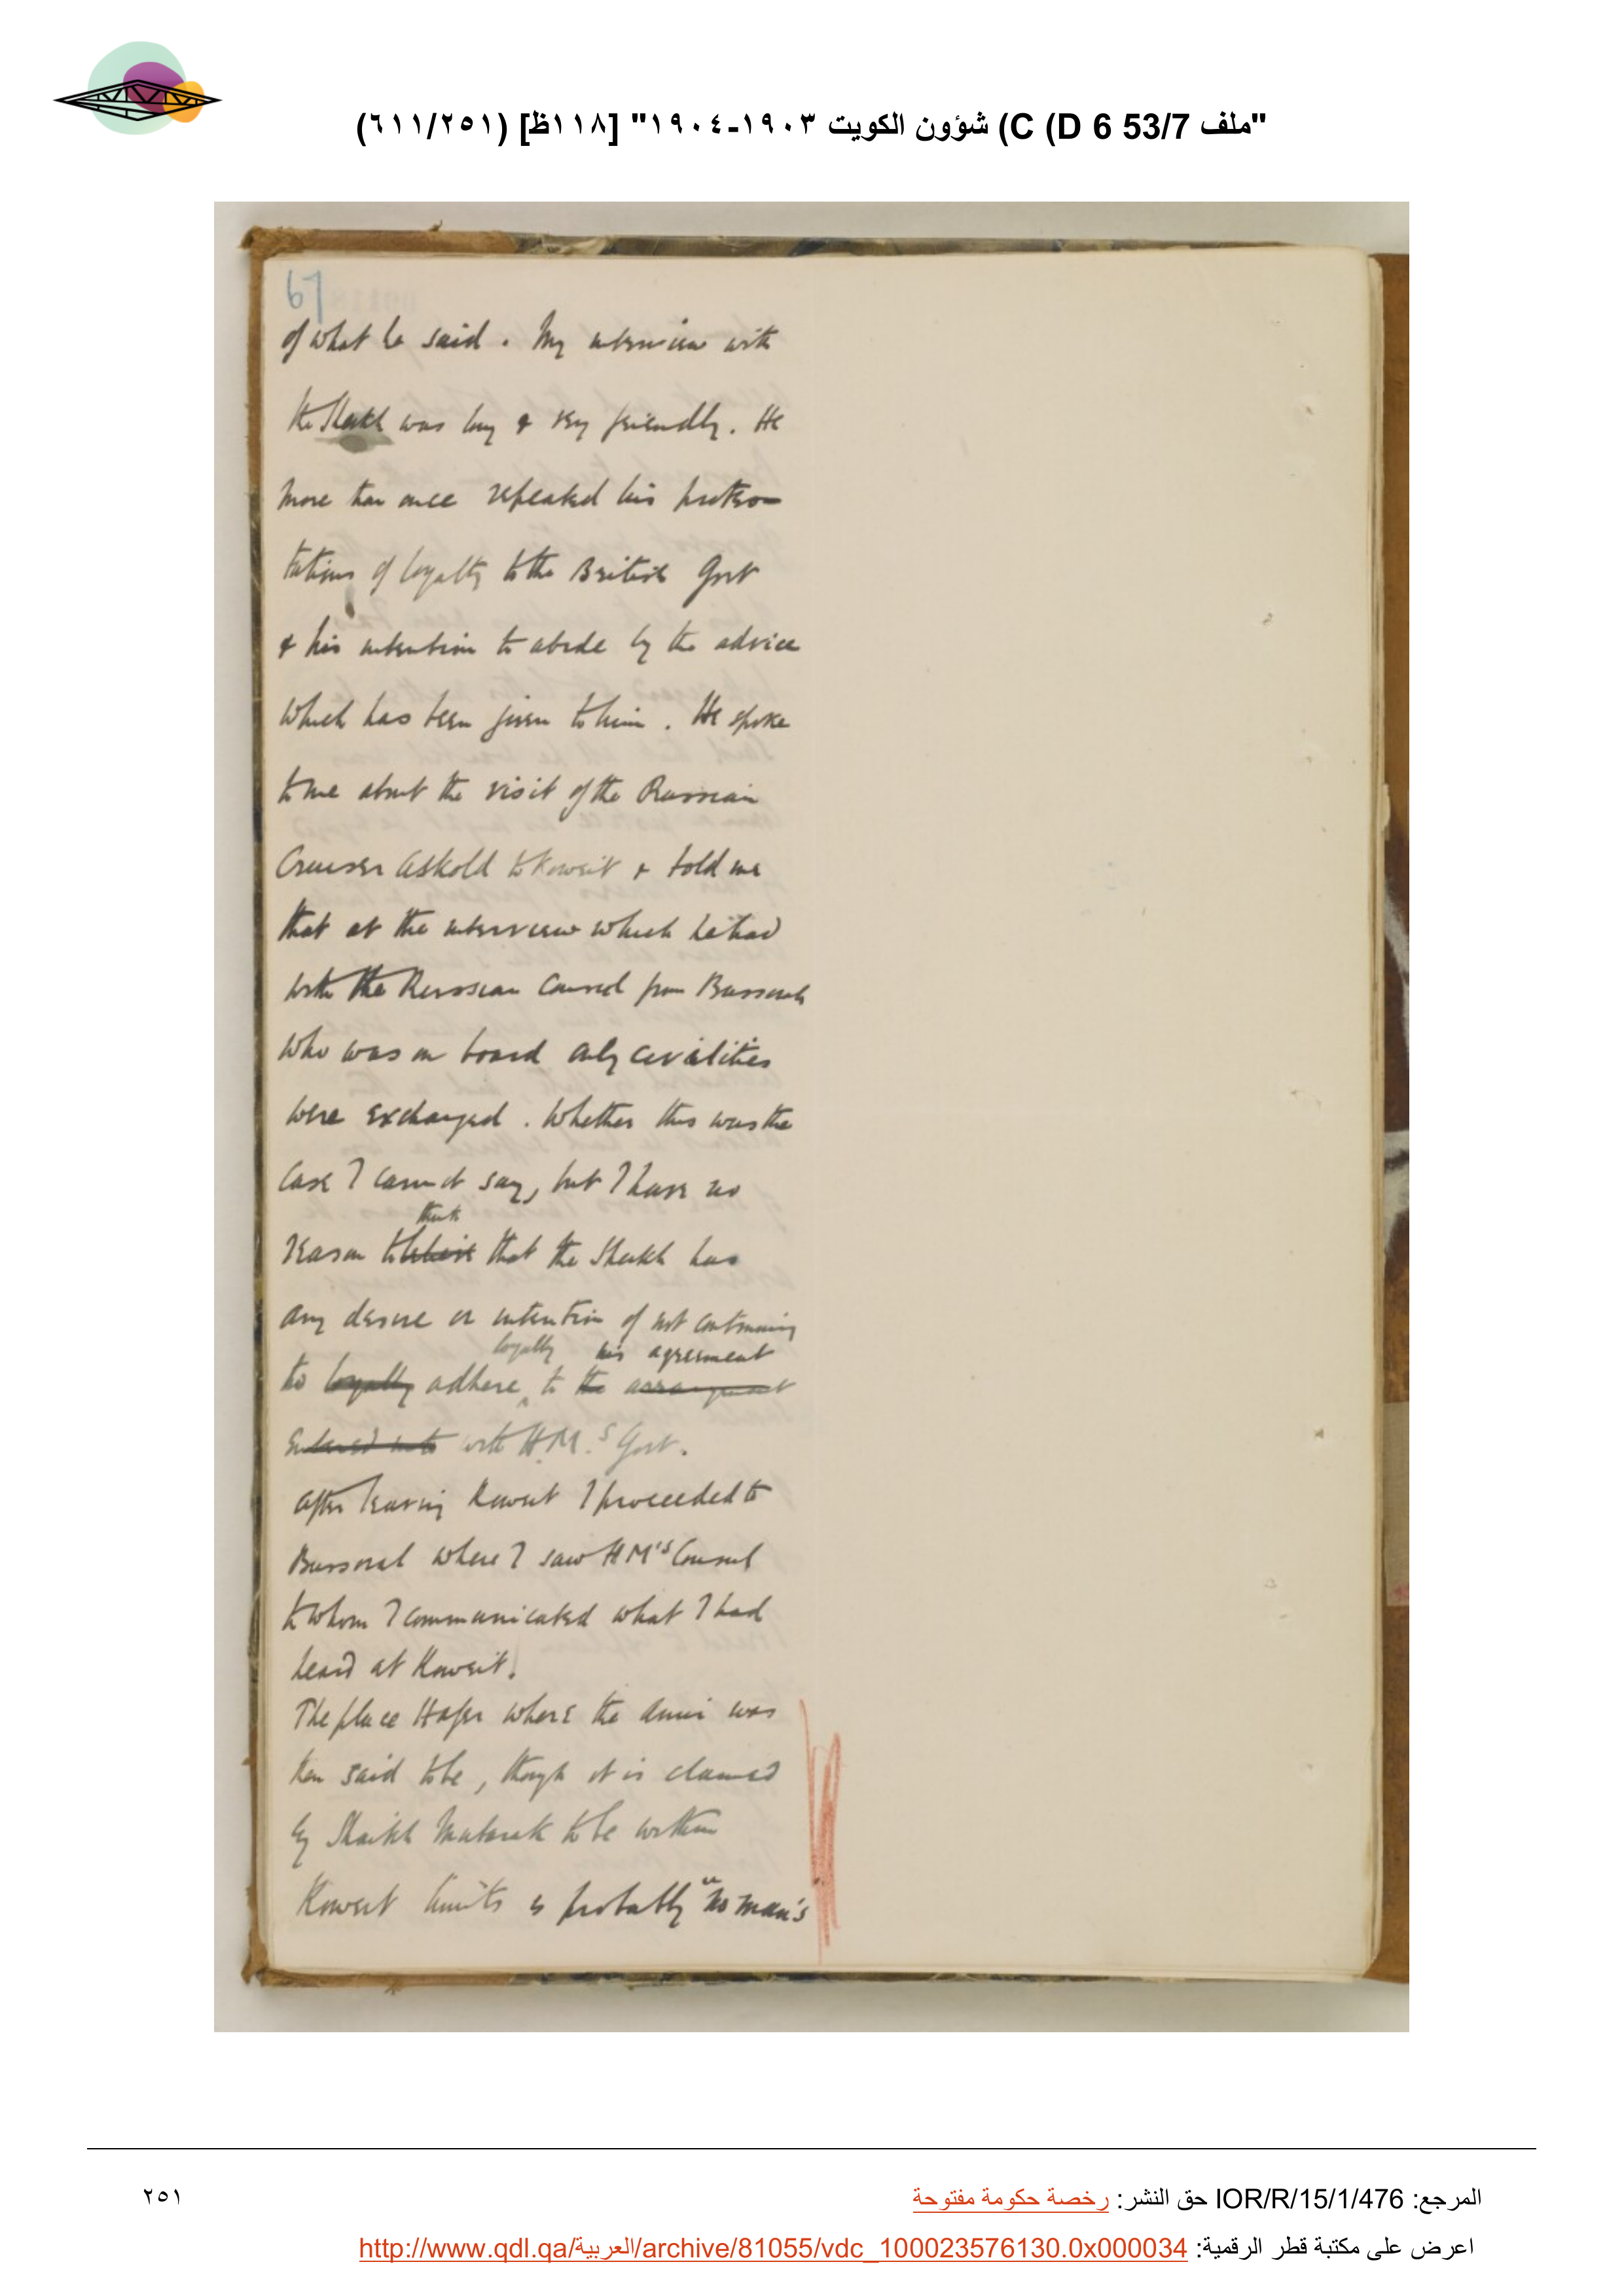 "ملف 53/7 D 6) C) شؤون الكويت ١٩٠٣-١٩٠٤" [١١٨ظ] (٦١١/٢٥١)
67
of what he said. My interview with
the Sheikh was long & very friendly. He
more than once repeated his protes-
tations of loyalty to the British Govt
& his intention to abide by the advice
which has been given to him. He spoke
to me about the visit of the Russian
Cruiser Askold to Koweit & told me
that at the interview which he had
with the Russian Consul from Bussorah
who was on board only civilities
were exchanged. Whether this was the
case I cannot say, but I have no
think
reason to believe that the Sheikh has
any desire or intention of not continuing
loyally his agreement
to loyally adhere to the arrangement
entered into with H.M.'s Govt.
After leaving Koweit I proceeded to
Bussorah where I saw HM's Consul
to whom I communicated what I had
heard at Koweit.
The place Hafer where the Amir was
then said to be, though it is claimed
by Sheikh Mubarak to be within
Koweit limits is probably "no man's
المرجع: IOR/R/15/1/476 حق النشر: رخصة حكومة مفتوحة
٢٥١
اعرض على مكتبة قطر الرقمية: http://www.qdl.qa/العربية/archive/81055/vdc_100023576130.0x000034